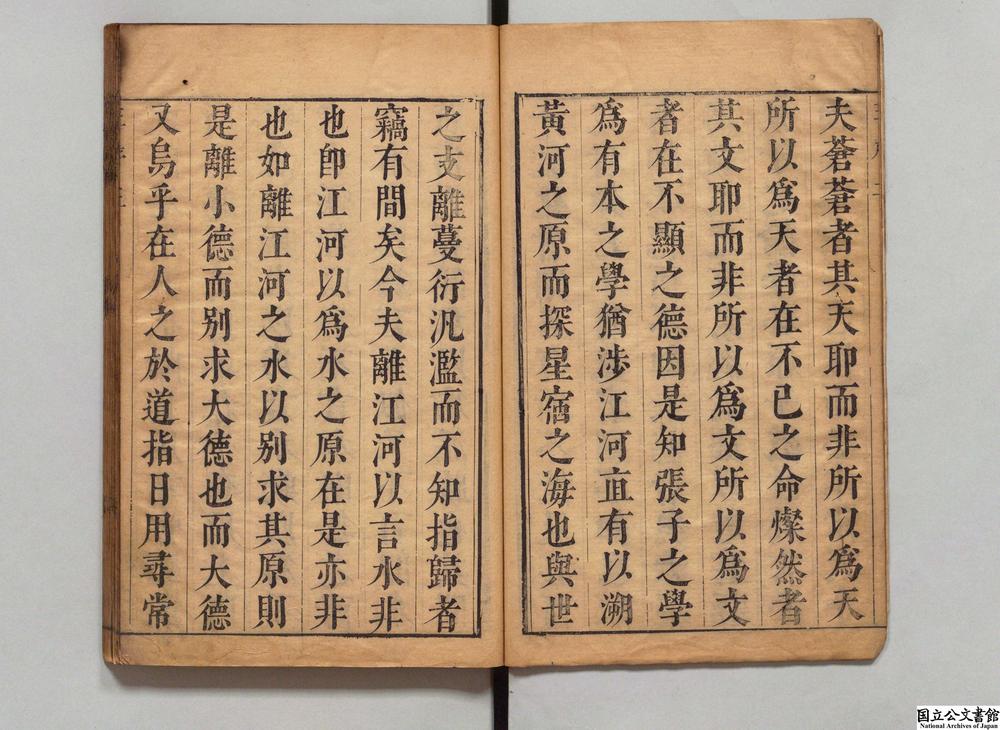 夫蒼蒼者其天耶而非所以爲天
所以爲天者在不已之命燦然者
其文耶而非所以爲文所以爲文
者在不顯之德因是知張子之學
爲有本之學猶涉江河亙有以溯
黃河之原而探星宿之海也與世
之支離蔓衍汎濫而不知指歸者
竊有間矣今夫離江河以言水非
也卽江河以爲水之原在是亦非
也如離江河之水以別求其原則
是離小德而別求大德也而大德
又烏乎在人之於道指日用尋常
国立公文書館
National Archives of Japan